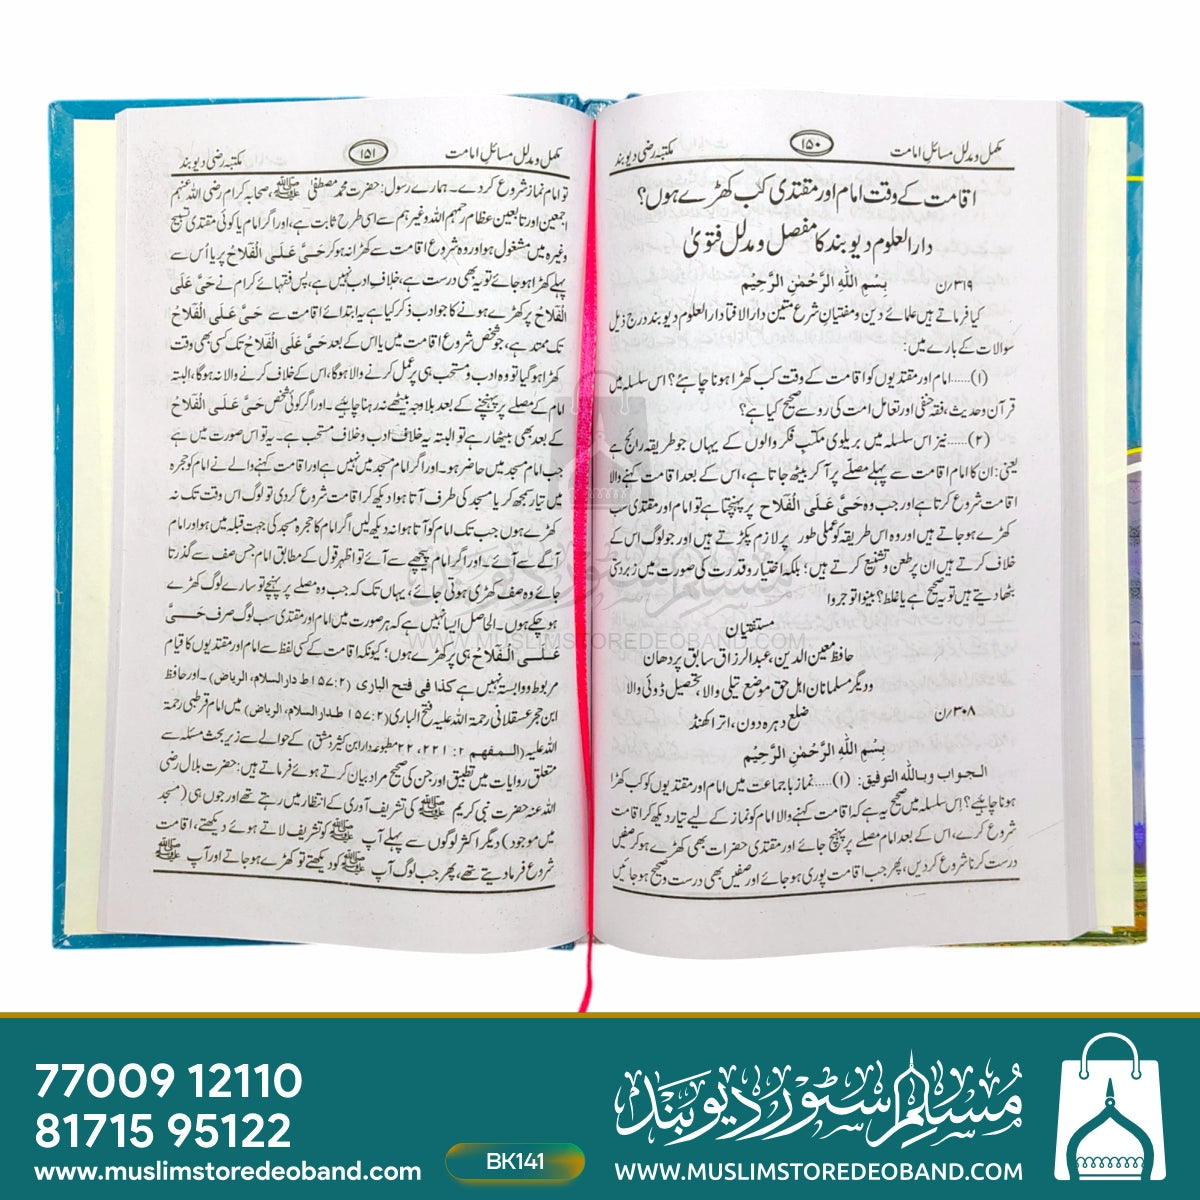 مکمل و مدلل مسائل امامت ۱۵۰ مکتبہ رضی دیوبند
اقامت کے وقت امام اور مقتدی کب کھڑے ہوں؟
دارالعلوم دیوبند کا مفصل و مدلل فتویٰ
۳۱۹/ن بِسْمِ اللهِ الرَّحْمٰنِ الرَّحِيْمِ
کیا فرماتے ہیں علمائے دین و مفتیانِ شرع متین دارالافتا دارالعلوم دیوبند درج ذیل
سوالات کے بارے میں:
(۱)..... امام اور مقتدیوں کو اقامت کے وقت کب کھڑا ہونا چاہئے؟ اس سلسلہ میں
قرآن و حدیث، فقہ حنفی اور تعامل امت کی رو سے صحیح کیا ہے؟
(۲)..... نیز اس سلسلہ میں بریلوی مکتبِ فکر والوں کے یہاں جو طریقہ رائج ہے
یعنی: ان کا امام اقامت سے پہلے مصلّے پر آکر بیٹھ جاتا ہے، اس کے بعد اقامت کہنے والا
اقامت شروع کرتا ہے اور جب وہ حَیَّ عَلَی الْفَلَاح پر پہنچتا ہے تو امام اور مقتدی سب
کھڑے ہو جاتے ہیں اور وہ اس طریقہ کو عملی طور پر لازم پکڑتے ہیں اور جو لوگ اس کے
خلاف کرتے ہیں ان پر طعن و تشنیع کرتے ہیں؛ بلکہ اختیار و قدرت کی صورت میں زبردستی
بٹھا دیتے ہیں تو یہ صحیح ہے یا غلط؟ بینوا توجروا
مستفتیان
حافظ معین الدین، عبدالرزاق سابق پردھان
و دیگر مسلمانان اہل حق موضع تیلی والا، تحصیل ڈوئی والا
۳۰۸/ن ضلع دہرہ دون، اتراکھنڈ
بِسْمِ اللهِ الرَّحْمٰنِ الرَّحِيْمِ
الجواب وبالله التوفیق: (۱)..... نماز باجماعت میں امام اور مقتدیوں کو کب کھڑا
ہونا چاہئے؟ اِس سلسلہ میں صحیح یہ ہے کہ اقامت کہنے والا امام کو نماز کے لیے تیار دیکھ کر اقامت
شروع کرے، اس کے بعد امام مصلے پر پہنچ جائے اور مقتدی حضرات بھی کھڑے ہو کر صفیں
درست کرنا شروع کردیں، پھر جب اقامت پوری ہو جائے اور صفیں بھی درست و صحیح ہو جائیں
مکمل و مدلل مسائل امامت ۱۵۱ مکتبہ رضی دیوبند
تو امام نماز شروع کردے۔ ہمارے رسول: حضرت محمد مصطفیٰ ﷺ، صحابہ کرام رضی اللہ عنہم
اجمعین اور تابعین عظام رحمہم اللہ وغیر ہم سے اسی طرح ثابت ہے، اور اگر امام یا کوئی مقتدی تسبیح
وغیرہ میں مشغول ہو اور وہ شروع اقامت سے کھڑا نہ ہو کر حَیَّ عَلَی الْفَلَاحُ پر یا اُس سے
پہلے کھڑا ہو جائے تو یہ بھی درست ہے، خلافِ ادب نہیں ہے، پس فقہائے کرام نے حَیَّ عَلَی
الْفَلَاحُ پر کھڑے ہونے کا جو ادب ذکر کیا ہے یہ ابتدائے اقامت سے حَیَّ عَلَی الْفَلَاحُ
تک ممتد ہے، جو شخص شروع اقامت میں یا اس کے بعد حَیَّ عَلَی الْفَلَاحُ تک کسی بھی وقت
کھڑا ہو گیا تو وہ ادب و مستحب ہی پر عمل کرنے والا ہوگا، اس کے خلاف کرنے والا نہ ہوگا، البتہ
امام کے مصلے پر پہنچنے کے بعد بلا وجہ بیٹھے نہ رہنا چاہئے۔ اور اگر کوئی شخص حَیَّ عَلَی الْفَلَاحُ
کے بعد بھی بیٹھا رہے تو البتہ یہ خلاف ادب و خلاف مستحب ہے۔ یہ تو اس صورت میں ہے
جب امام مسجد میں حاضر ہو۔ اور اگر امام مسجد میں نہیں ہے اور اقامت کہنے والے نے امام کو حجرہ
میں تیار سمجھ کر یا مسجد کی طرف آتا ہوا دیکھ کر اقامت شروع کردی تو لوگ اس وقت تک نہ
کھڑے ہوں جب تک امام کو آتا ہوا نہ دیکھ لیں اگر امام کا حجرہ مسجد کی جہت قبلہ میں ہو اور امام
آگے سے آئے۔ اور اگر امام پیچھے سے آئے تو اظہر قول کے مطابق امام جس صف سے گذرتا
جائے وہ صف کھڑی ہوتی جائے، یہاں تک کہ جب وہ مصلے پر پہنچے تو سارے لوگ کھڑے
ہو چکے ہوں۔ الحاصل ایسا نہیں ہے کہ ہر صورت میں امام اور مقتدی سب لوگ صرف حَیَّ
عَلَی الْفَلَاحُ ہی پر کھڑے ہوں؛ کیونکہ اقامت کے کسی لفظ سے امام اور مقتدیوں کا قیام
مربوط و وابستہ نہیں ہے کذا فی فتح الباری (۲: ۱۵۷ ط دارالسلام، الریاض)۔ اور حافظ
ابن حجر عسقلانی رحمۃ اللہ علیہ فتح الباری (۲: ۱۵۷ ط دارالسلام، الریاض) میں امام قرطبی رحمۃ
اللہ علیہ (المفہم ۲: ۲۲۱، ۲۲۲ مطبوعہ دار ابن کثیر دمشق) کے حوالے سے زیر بحث مسئلہ سے
متعلق روایات میں تطبیق اور جن کی صحیح مراد بیان کرتے ہوئے فرماتے ہیں: حضرت بلال رضی
اللہ عنہ حضرت نبی کریم ﷺ کی تشریف آوری کے انتظار میں رہتے تھے اور جوں ہی (مسجد
میں موجود) دیگر اکثر لوگوں سے پہلے آپ ﷺ کو تشریف لاتے ہوئے دیکھتے، اقامت
شروع فرما دیتے تھے، پھر جب لوگ آپ ﷺ کو دیکھتے تو کھڑے ہو جاتے اور آپ ﷺ
مسلم سٹور دیوبند
WWW.MUSLIMSTOREDEOBAND.COM
77009 12110
81715 95122
www.muslimstoredeoband.com
BK141
مسلم سٹور دیوبند
WWW.MUSLIMSTOREDEOBAND.COM